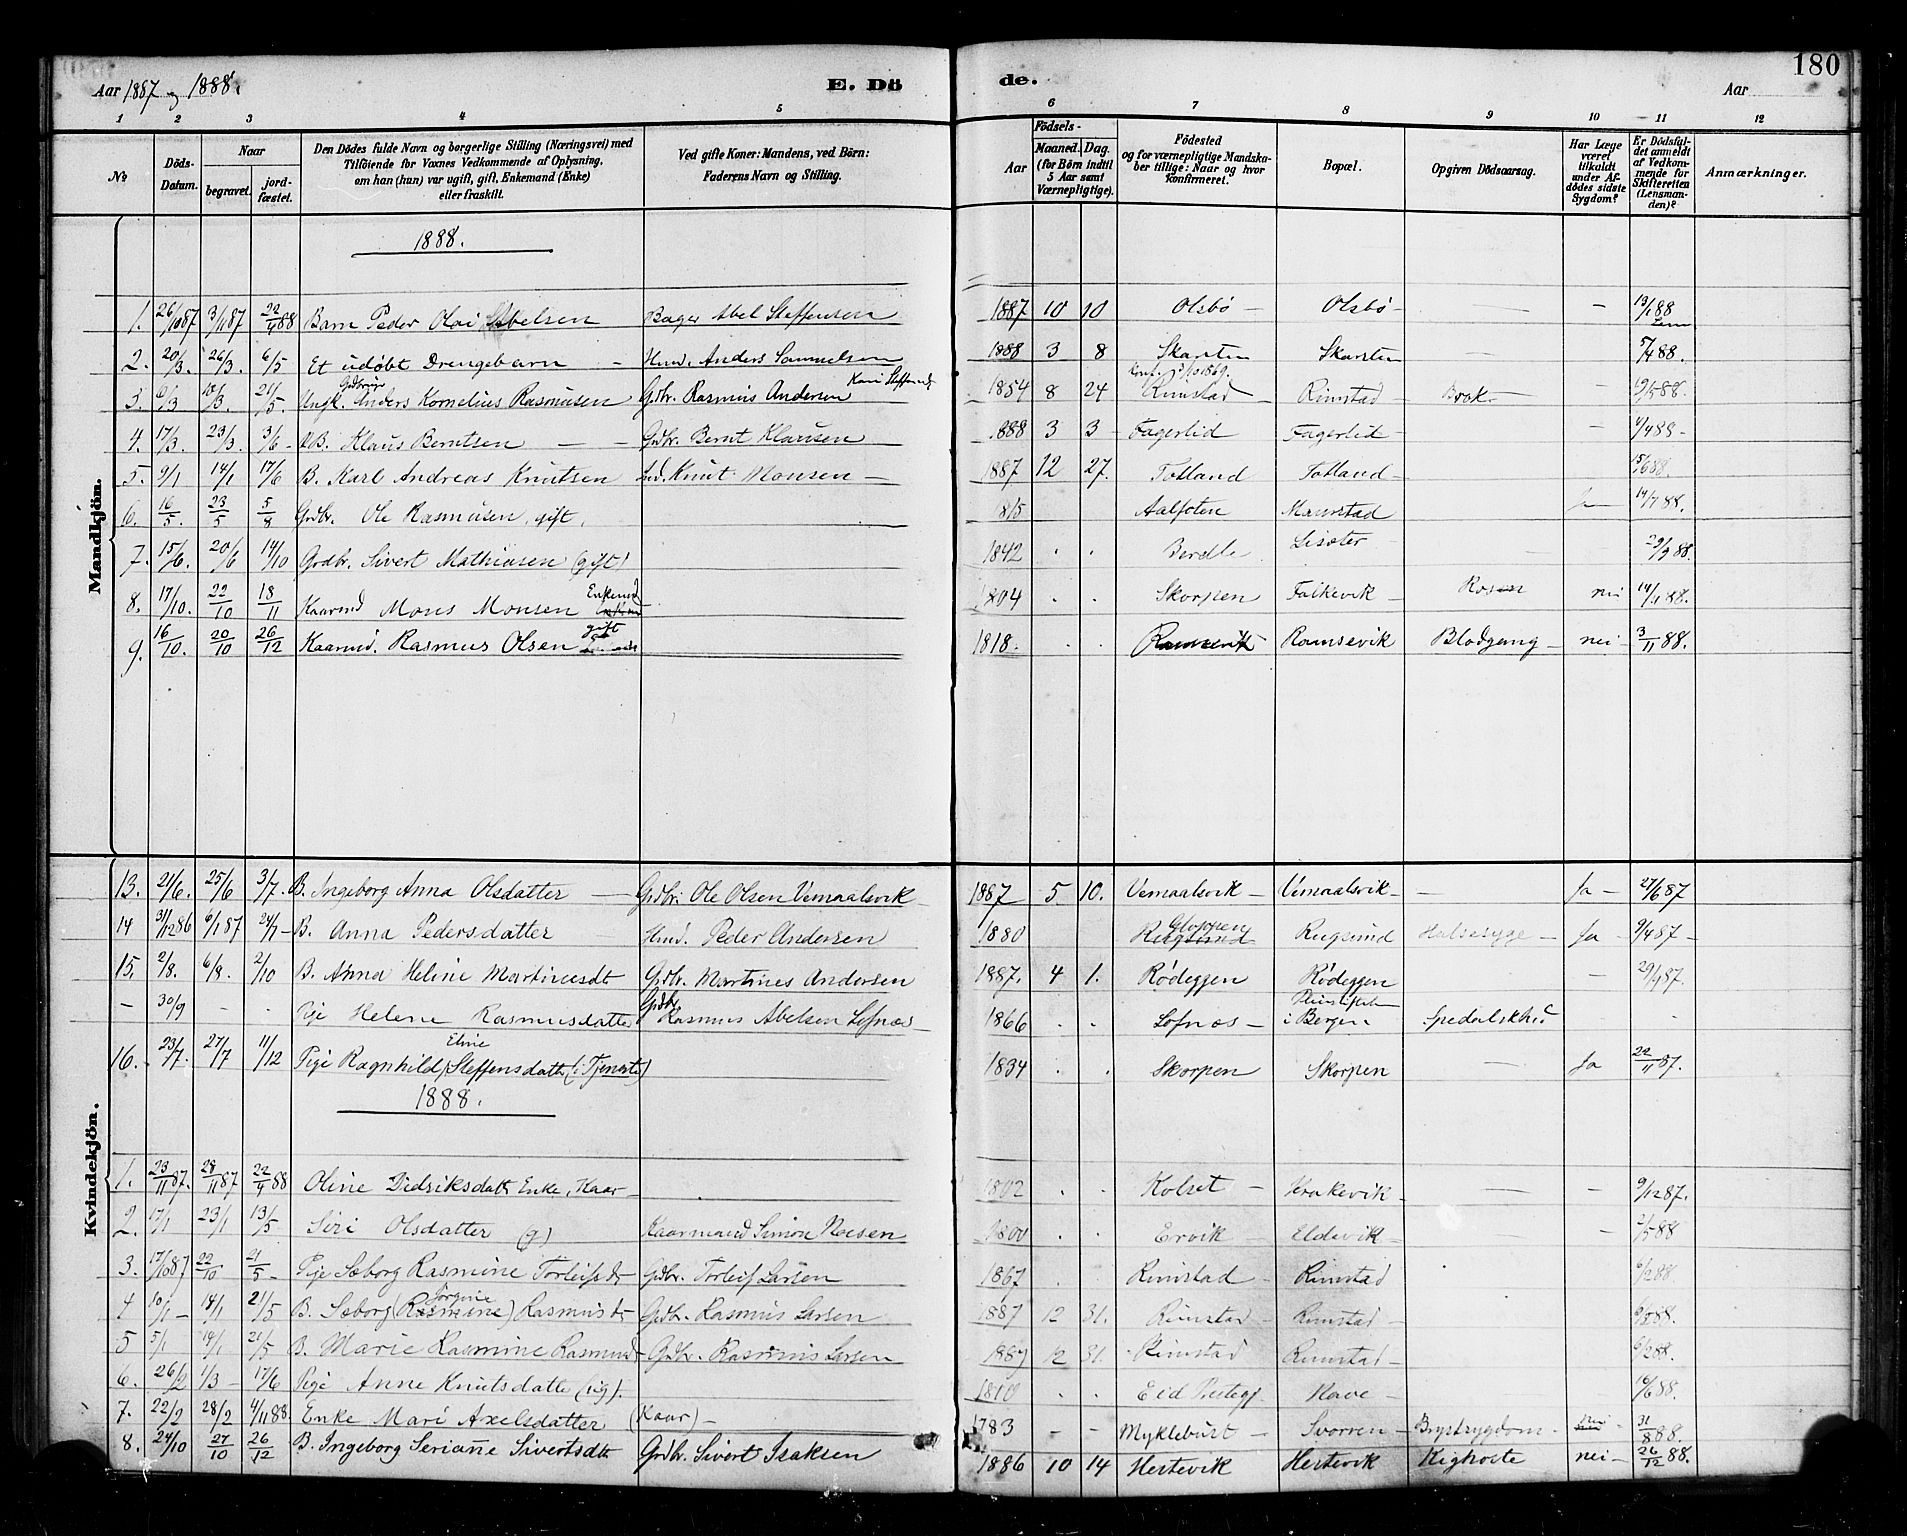 180
Aar 1887 og 1888.
E. Döde.
Aar
1 2 3 4 5 6 7 8 9 10 11 12
No
Döds-Datum.
Naar
begravet.
jord-fæstet.
Den Dödes fulde Navn og borgerlige Stilling (Næringsvei) med
Tilföiende for Voxnes Vedkommende af Oplysning,
om han (hun) var ugift, gift, Enkemand (Enke)
eller fraskilt.
Ved gifte Koner: Mandens, ved Börn:
Faderens Navn og Stilling.
Födsels-
Aar
Maaned. Dag.
(for Börn indtil
5 Aar samt
Værnepligtige).
Födested
og for værnepligtige Mandska-
ber tillige: Naar og hvor
konfirmeret.
Bopæl.
Opgiven Dödsaarsag.
Har Læge
været
tilkaldt
under Af-
dödes sidste
Sygdom?
Er Dödsfal-
det anmeldt
af Vedkom-
mende for
Skifteretten
(Lensman-
den)?
Anmærkninger.
Mandkjön.
1888.
1. 26/10 87 3/11 87 22/4 88 Barn Peder Olai Abelsen Bager Abel Steffensen 1887 10 10 Olsbö - Olsbö - - - 13/1 88
2. 20/3. 26/3. 6/5 Et udöbt Drengebarn - Hmd. Anders Samuelsen 1888 3 8 Skarsten Skarsten - 5/4 88.
3. 6/3 18/3. 21/5. Ungk. Anders Kornelius Rasmusen Gdbr. Rasmus Andersen 1854 8 24 Rimstad - Rimstad - Brok - - 19/5 88.
4. 17/3. 23/3. 3/6 - Klaus Berntsen - - Grdbr. Bernt Klausen 1888 3 3 - Fagerlid Fagerlid - - 4/4 88 -
5. 9/1 14/1 17/6 B. Karl Andreas Knutsen Knut Monsen - 1887 12 27. Totland Totland - 15/6 88.
6. 16/5. 23/5 5/8 Grdbr. Ole Rasmusen, gift, Aalfoten Maurstad 14/7 88.
7. 15/6. 20/6 14/10 Grdbr. Sivert Mathiasen (gift) 1842 . . Berdle Lisæter - 29/9 88.
8. 17/10. 22/10 18/11 Kaarmd Mons Monsen Enkemd 1804 . . Skorpen Falkevik - Rosen nei 14/11 88.
9. 16/10. 20/10 26/12 Kaarmd. Rasmus Olsen gift 1818. . . Ramsevik Ramsevik Blodgang - nei - 3/11 88.
Kvindekjön.
13. 21/6. 25/6 3/7. B. Ingeborg Anna Olsdatter - Grdbr. Ole Olsen Vemaalsvik 1887 5 10. Vemaalsvik - Vemaalsvik - - Ja - 27/6 87
14 31/12 86 6/1 87 24/7 - B. Anna Pedersdatter Hmd. Peder Andersen 1880 Rugsund Gloppen Rugsund Halsesyge - Ja - 9/4 87 -
15. 2/8. 6/8. 2/10 B. Anna Heline Martinusdt Grdbr. Martines Andersen 1887. 4 1. Rödeggen Rödeggen - 29/9 87.
- 30/9 - . Pige Helene Rasmusdatter Grdbr. Rasmus Abelsen Lofnæs - 1866 . . Lofnæs - Pleiestiftelsen i Bergen Spedalskhed .
16. 23/7. 27/7 11/12 Pige Ragnhild (Eline Steffensdatter (i Tjeneste) 1834 . . Skorpen Skorpen - Ja 22/11 87.
1888.
1. 23/11 87. 28/11 87 22/4 88 Oline Didriksdatt Enke, Kaar - . 1802 . . Kolset - Krakevik - - - 9/12 87.
2. 17/1 23/1 13/5. Siri Olsdatter (g) Kaarmand Simon 1800 . . Ervik - Eldevik - - 2/5 88
3. 17/10 87 22/10 21/5 - Pige Sæborg Rasmine Torleifsdr Grdbr. Torleif Larsen 1867 . Rimstad - Rimstad 6/2 88.
4 10/1 - 18/1 21/5 B. Sæborg (Rasmine) Jörgine Rasmusdr Grdbr. Rasmus Larsen 1887 12 31. Rimstad - Rimstad - 6/2 88.
5 5/1 19/1 21/5 B. Marie Rasmine Rasmusd Grdbr. Rasmus Larsen 1887 12 31. Rimstad Rimstad - 6/2 88.
6. 26/2 1/3 - 17/6 Pige Anne Knutsdatter (ug). 1810 . . Eid Prestegj. Nave - 16/6 88.
7. 22/2 28/2 4/11 88. Enke Mari Axelsdatter (Kaar) - 1783 - - Myklebust - Svorren - Brystsygdom - nei 31/8 88.
8. 24/10 27/10 26/12 B. Ingeborg Seriane Sivertsdt. Grdbr. Sivert Isaksen 1886 10 14 Hestevik Hestevik Kighoste nei - 26/12 88.